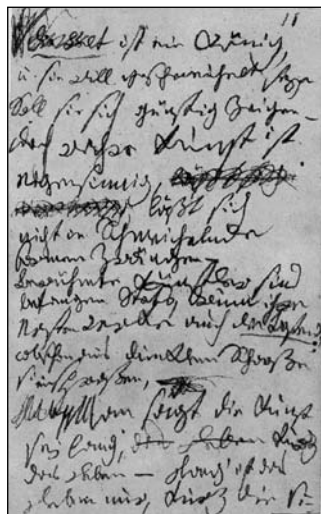 18
Welt ist ein König,
u. sie will geschmeichelt seyn
Soll sie sich günstig zeigen –
doch wahre Kunst ist
eigensinnig,
läßt sich
nicht in Schmeichelnde
Formen zwängen –
Berühmte Künstler sind
befangen stets, drum ihre
Ersten Werke auch die besten,
obschon aus dunklem Schooße
sie entsproßen,
Man sagt die Kunst
sey lang, kurz
das Leben – lang ist das
leben nur, kurz die